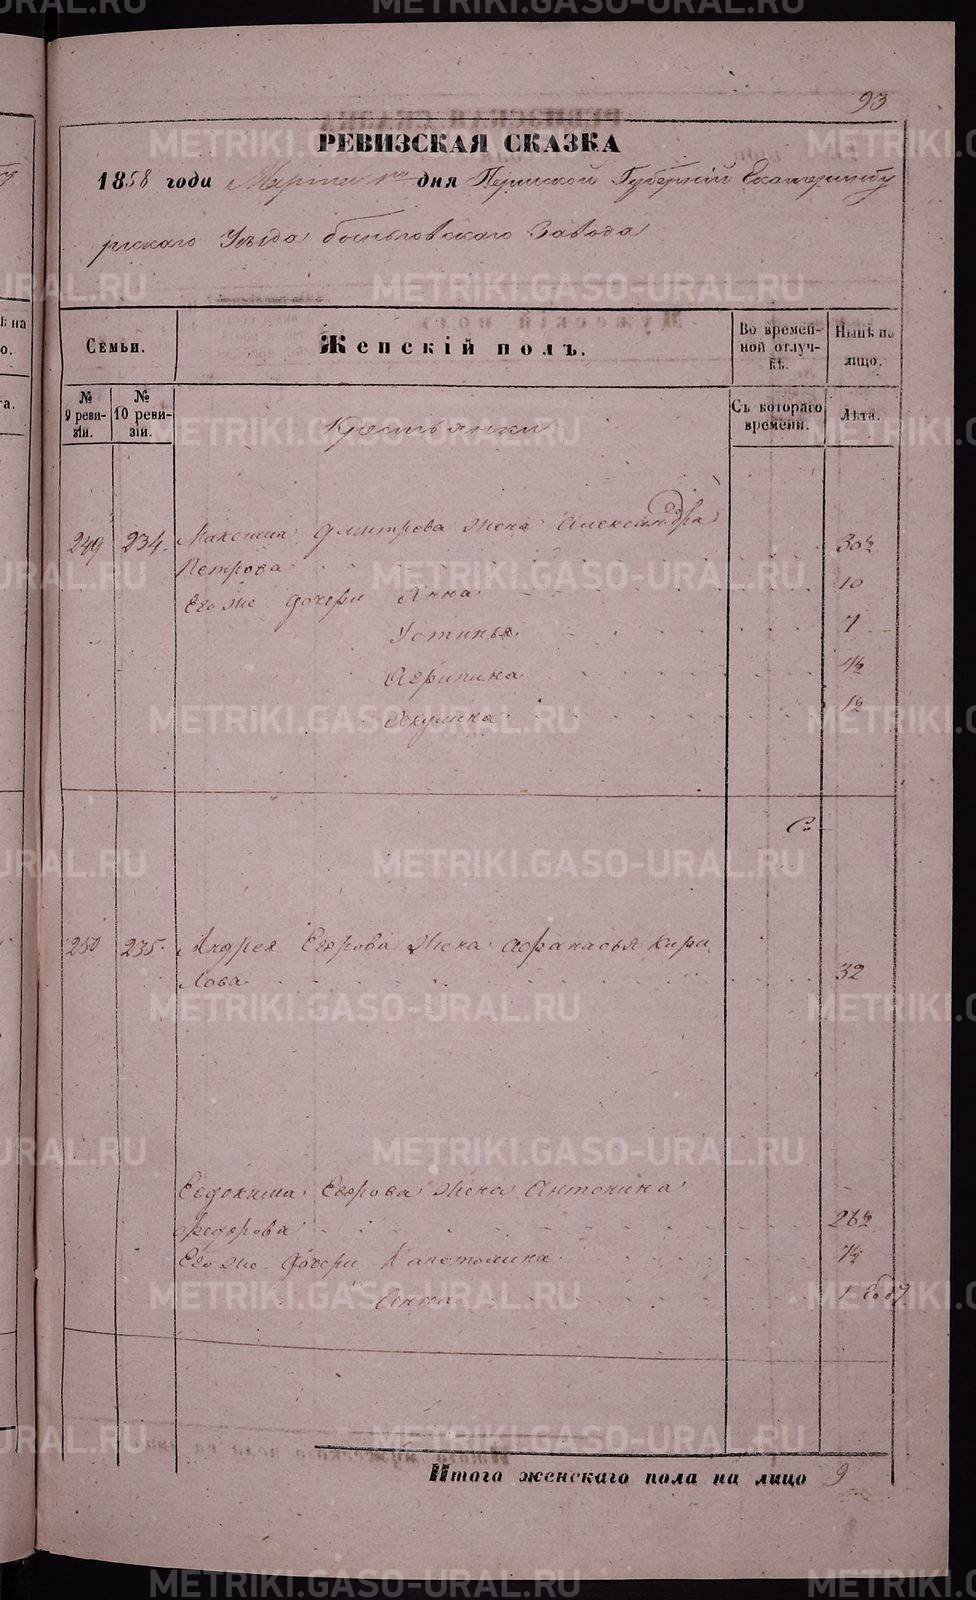 93
РЕВИЗСКАЯ СКАЗКА
1858 года Марта 1го дня Пермской Губернiи Екатеринбу
ргскаго Уезда быньговскаго Завода
Семьи.
Женскiй полъ.
Во времен-
ной отлуч-
кѣ.
Нынѣ на
лицо.
№
9 реви-
зiи.
№
10 реви-
зiи.
Съ котораго
времени.
Лѣта.
Крестьянки
249 234. Максима Дмитрова жена Александра
Петрова 30½
Его же дочери Анна 10
Устинья 7
Агрипина 4½
Окулина 1½
250 235. Андрея Егорова жена Афанасья Кири
лова 32
Евдокима Егорова жена Антонина
Федорова 26½
Его же дочери Капетолина 7½
Анна 1
Итого женскаго пола на лицо 9
METRIKI.GASO-URAL.RU